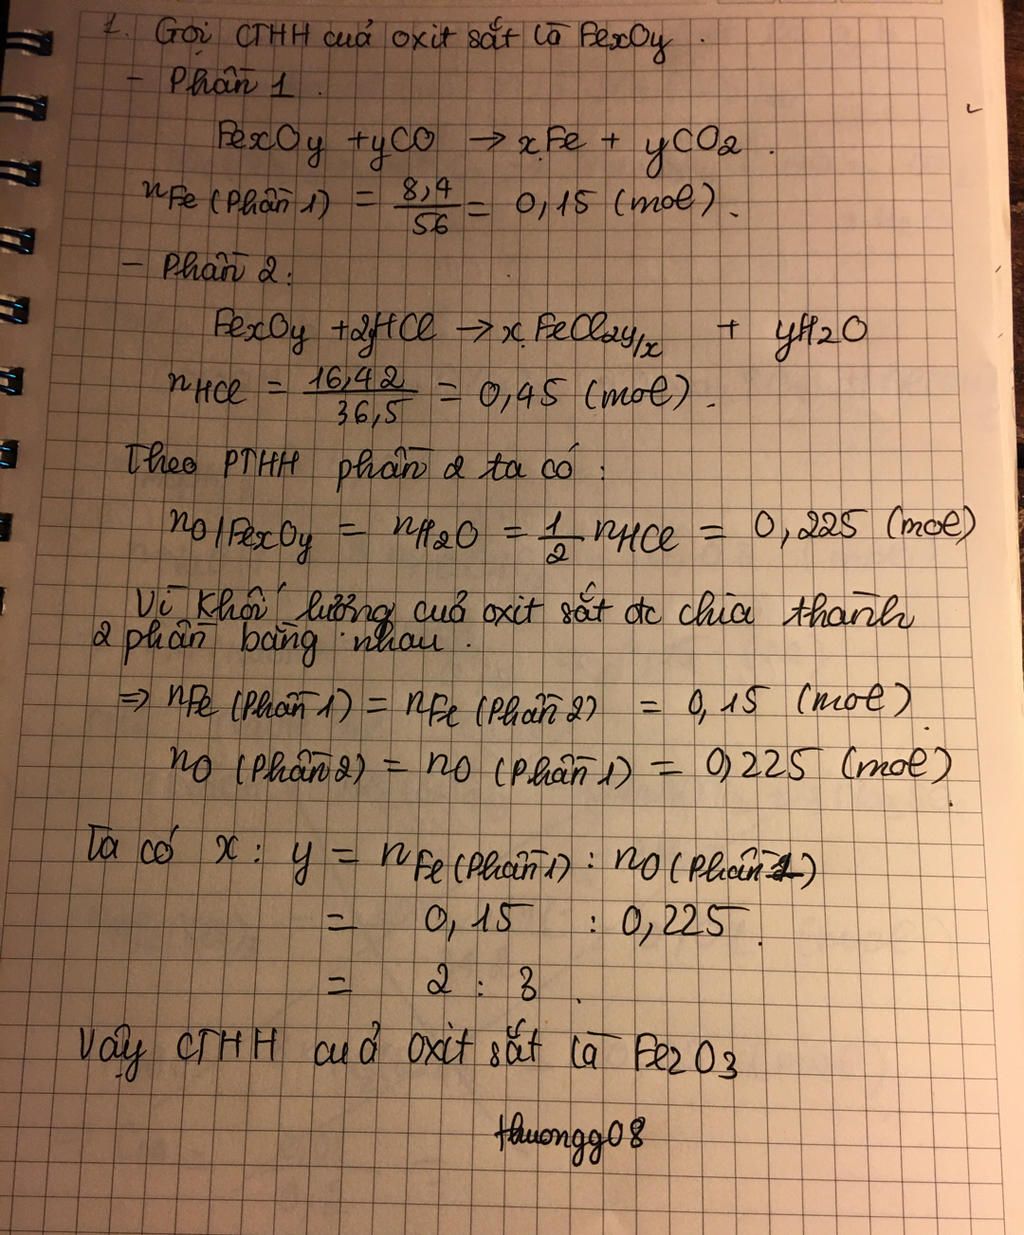 1. Gọi CTHH cuả oxit sắt là FexOy.
- Phần 1.
FexOy + yCO → xFe + yCO2.
nFe (Phần 1) = 8,4/56 = 0,15 (mol).
- Phần 2:
FexOy + 2yHCl → x FeCl2y/x + yH2O
nHCl = 16,42/36,5 = 0,45 (mol).
Theo PTHH phần 2 ta có:
nO/FexOy = nH2O = 1/2 nHCl = 0,225 (mol)
Vì khối lượng cuả oxit sắt đc chia thành
2 phần bằng nhau.
⇒ nFe (Phần 1) = nFe (Phần 2) = 0,15 (mol).
nO (Phần 2) = nO (Phần 1) = 0,225 (mol).
Ta có x : y = nFe (Phần 1) : nO (Phần 1)
= 0,15 : 0,225.
= 2 : 3.
Vậy CTHH cuả oxit sắt là Fe2O3
thuongg08